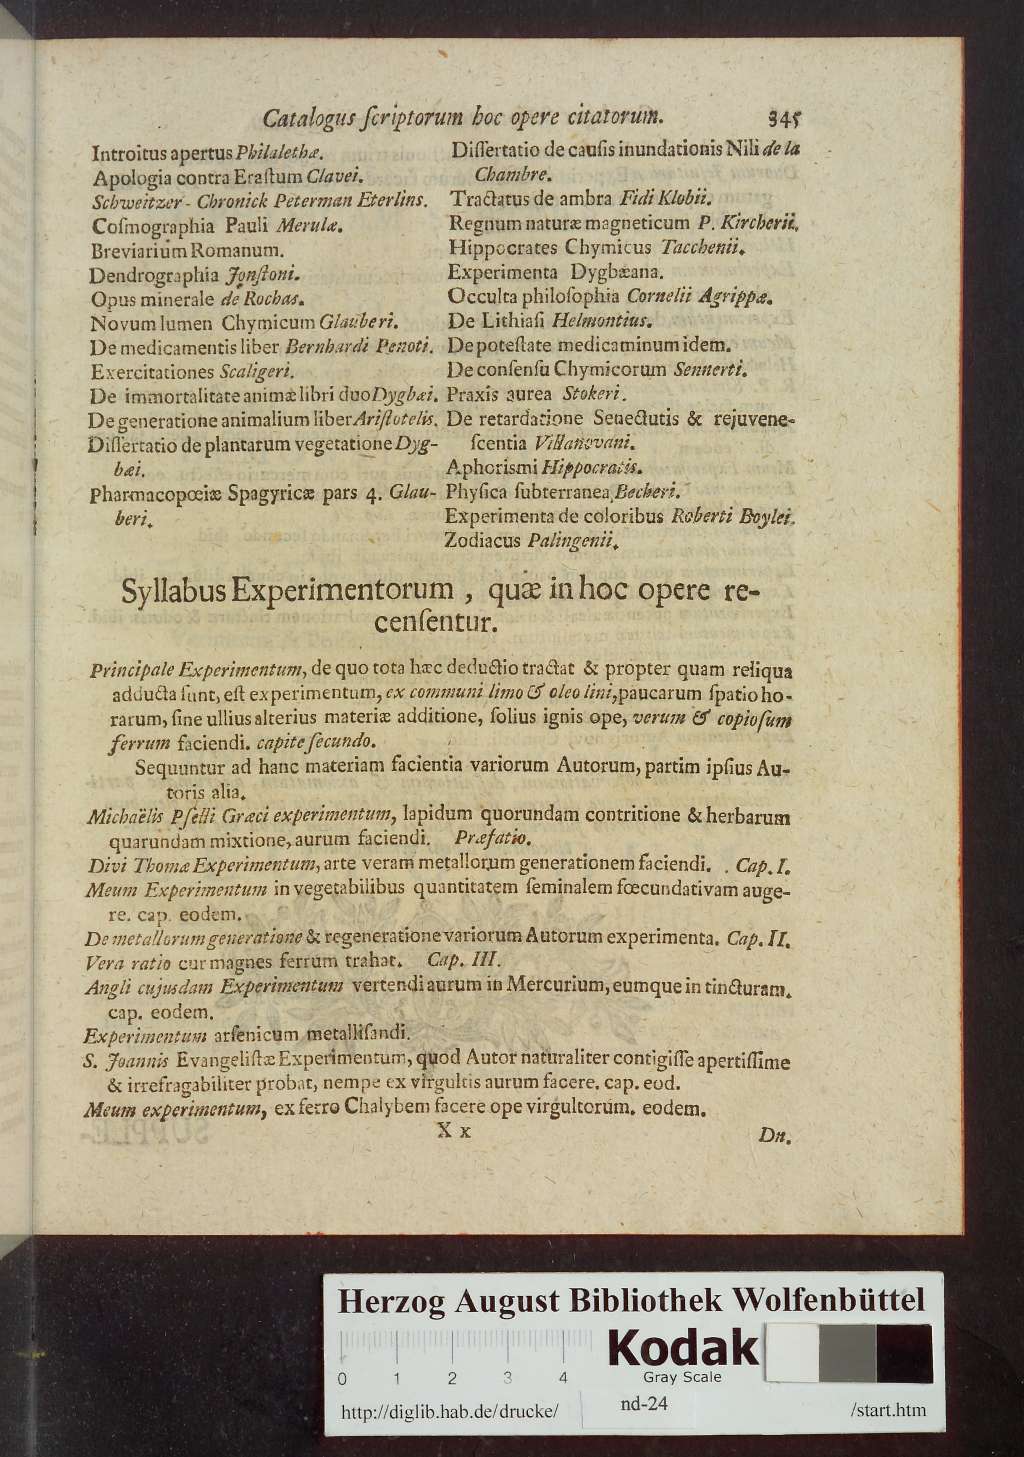 Catalogus ſcriptorum hoc opere citatorum. 345
Introitus apertus Philalethæ.
Apologia contra Eraſtum Clavei.
Schweitzer-Chronick Peterman Eterlins.
Coſmographia Pauli Merulæ.
Breviarium Romanum.
Dendrographia Jonſtoni.
Opus minerale de Rochas.
Novum lumen Chymicum Glauberi.
De medicamentis liber Bernhardi Penoti.
Exercitationes Scaligeri.
De immortalitate animæ libri duo Dygbæi.
De generatione animalium liber Ariſtotelis.
Diſſertatio de plantarum vegetatione Dyg-
bæi.
Pharmacopœiæ Spagyricæ pars 4. Glau-
beri.
Diſſertatio de cauſis inundationis Nili de la
Chambre.
Tractatus de ambra Fidi Klobii.
Regnum naturæ magneticum P. Kircherii.
Hippocrates Chymicus Tacchenii.
Experimenta Dygbæana.
Occulta philoſophia Cornelii Agrippæ.
De Lithiaſi Helmontius.
De poteſtate medicaminum idem.
De conſenſu Chymicorum Sennerti.
Praxis aurea Stokeri.
De retardatione Senectutis & rejuvene-
ſcentia Villanovani.
Aphoriſmi Hippocratis.
Phyſica ſubterranea Becheri.
Experimenta de coloribus Roberti Boylei.
Zodiacus Palingenii.
Syllabus Experimentorum, quæ in hoc opere re-
cenſentur.
Principale Experimentum, de quo tota hæc deductio tractat & propter quam reliqua
adducta ſunt, eſt experimentum, ex communi limo & oleo lini, paucarum ſpatio ho-
rarum, ſine ullius alterius materiæ additione, ſolius ignis ope, verum & copioſum
ferrum faciendi. capite ſecundo.
Sequuntur ad hanc materiam facientia variorum Autorum, partim ipſius Au-
toris alia.
Michaëlis Pſelli Græci experimentum, lapidum quorundam contritione & herbarum
quarundam mixtione, aurum faciendi. Præfatio.
Divi Thomæ Experimentum, arte veram metallorum generationem faciendi. Cap. I.
Meum Experimentum in vegetabilibus quantitatem ſeminalem fœcundativam auge-
re. cap. eodem.
De metallorum generatione & regeneratione variorum Autorum experimenta. Cap. II.
Vera ratio cur magnes ferrum trahat. Cap. III.
Angli cujusdam Experimentum vertendi aurum in Mercurium, eumque in tincturam.
cap. eodem.
Experimentum arſenicum metalliſandi.
S. Joannis Evangeliſtæ Experimentum, quod Autor naturaliter contigiſſe apertiſſime
& irrefragabiliter probat, nempe ex virgultis aurum facere. cap. eod.
Meum experimentum, ex ferro Chalybem facere ope virgultorum. eodem.
X x Dn.
Herzog August Bibliothek Wolfenbüttel
Kodak
Gray Scale
0 1 2 3 4
http://diglib.hab.de/drucke/ nd-24 /start.htm